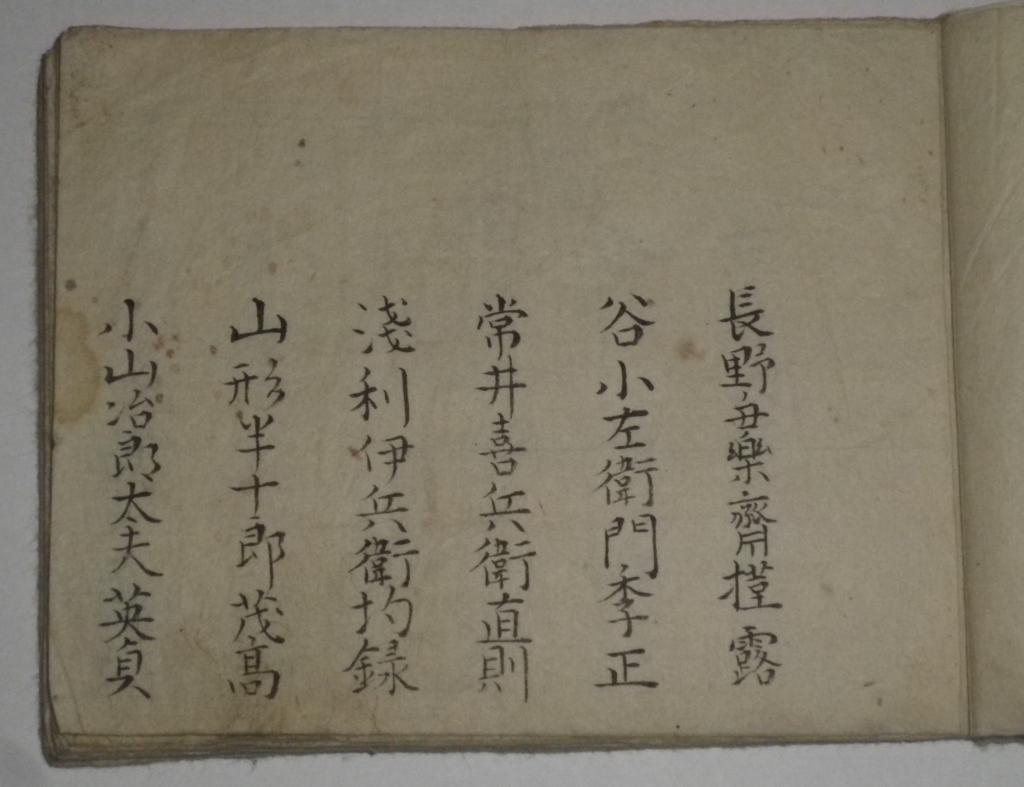 長野無樂齋槿露
谷小左衛門季正
常井喜兵衛直則
淺利伊兵衛均録
山形半十郎茂高
小山治郎太夫英貞